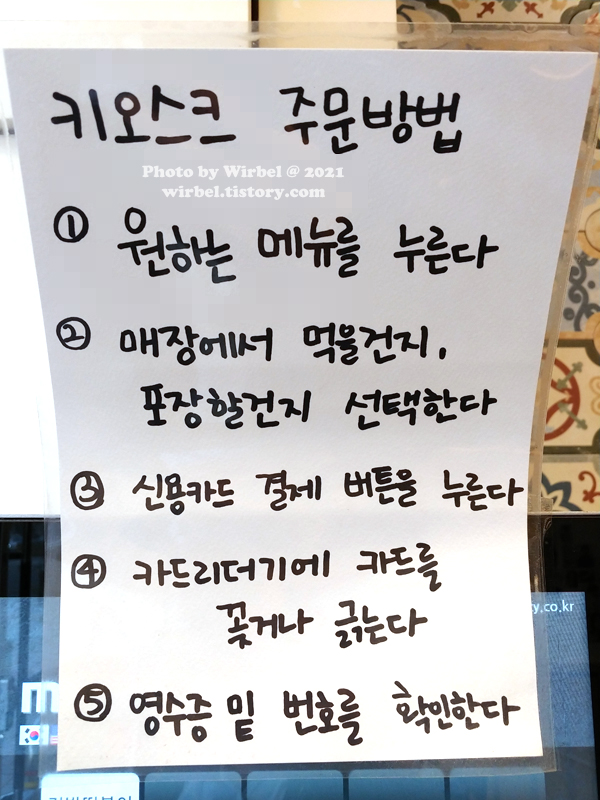 키오스크 주문방법
Photo by Wirbel @ 2021
wirbel.tistory.com
① 원하는 메뉴를 누른다
② 매장에서 먹을건지,
포장할건지 선택한다
③ 신용카드 결제 버튼을 누른다
④ 카드리더기에 카드를
꽂거나 긁는다
⑤ 영수증 밑 번호를 확인한다